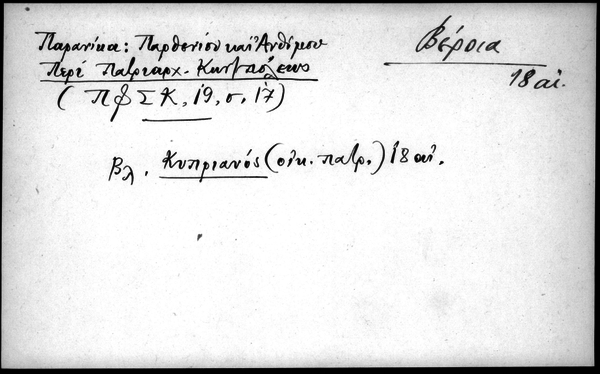 Βέροια
18 αἰ.
Παρανίκα: Παρθενίου καὶ Ἀνθίμου
Περὶ Πατριαρχ. Κωνπόλεως
(ΠΦΣΚ, 19, σ. 17)
Βλ. Κυπριανός (οἰκ. πατρ.) 18 αἰ.